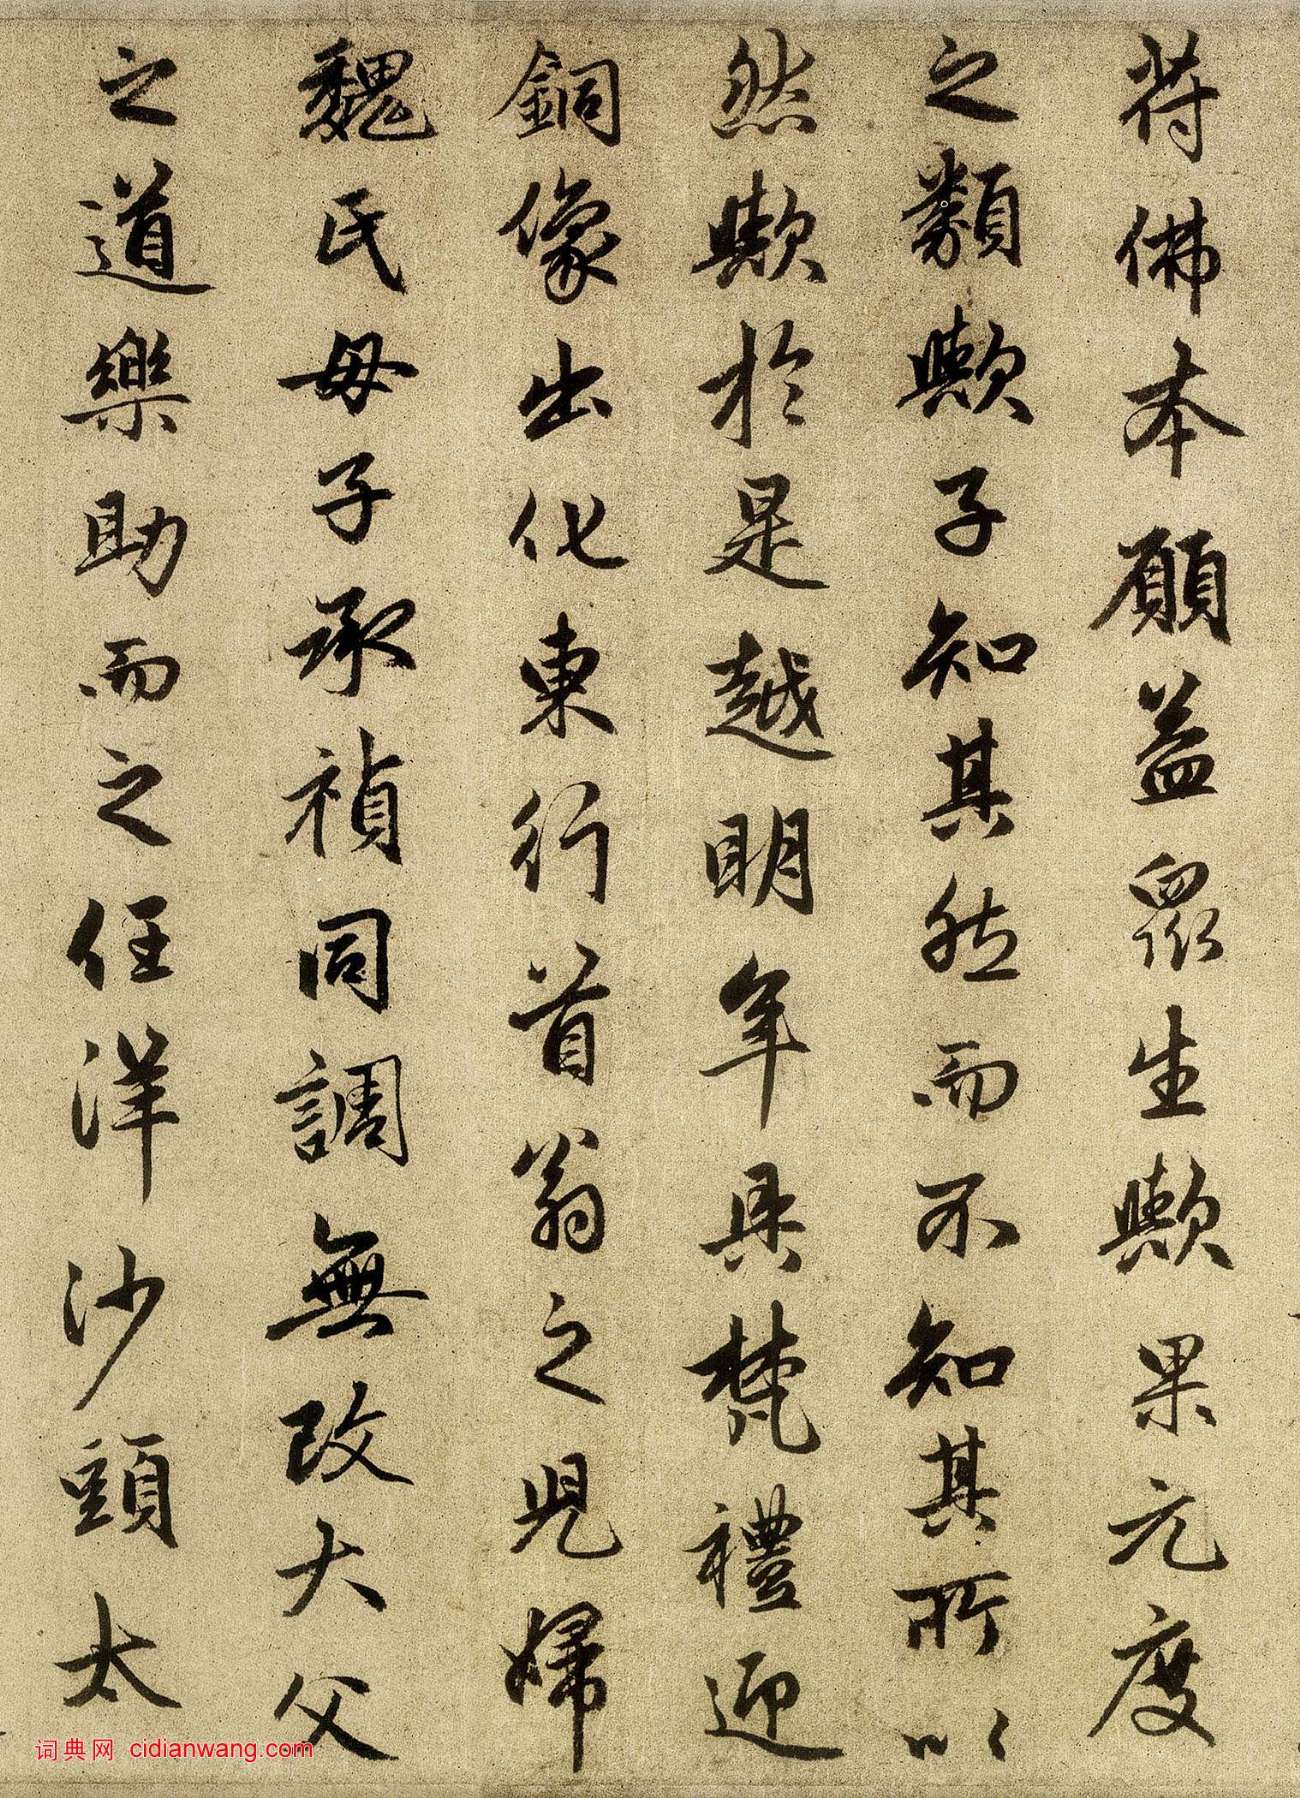 符佛本願蓋眾生歟果元度
之類歟子知其然而不知其所以
然歟於是越明年具梵禮迎
銅像出化東行首翁之児婦
魏氏母子承禎同調無改大父
之道樂助而之任洋沙頭太
词典网 cidianwang.com